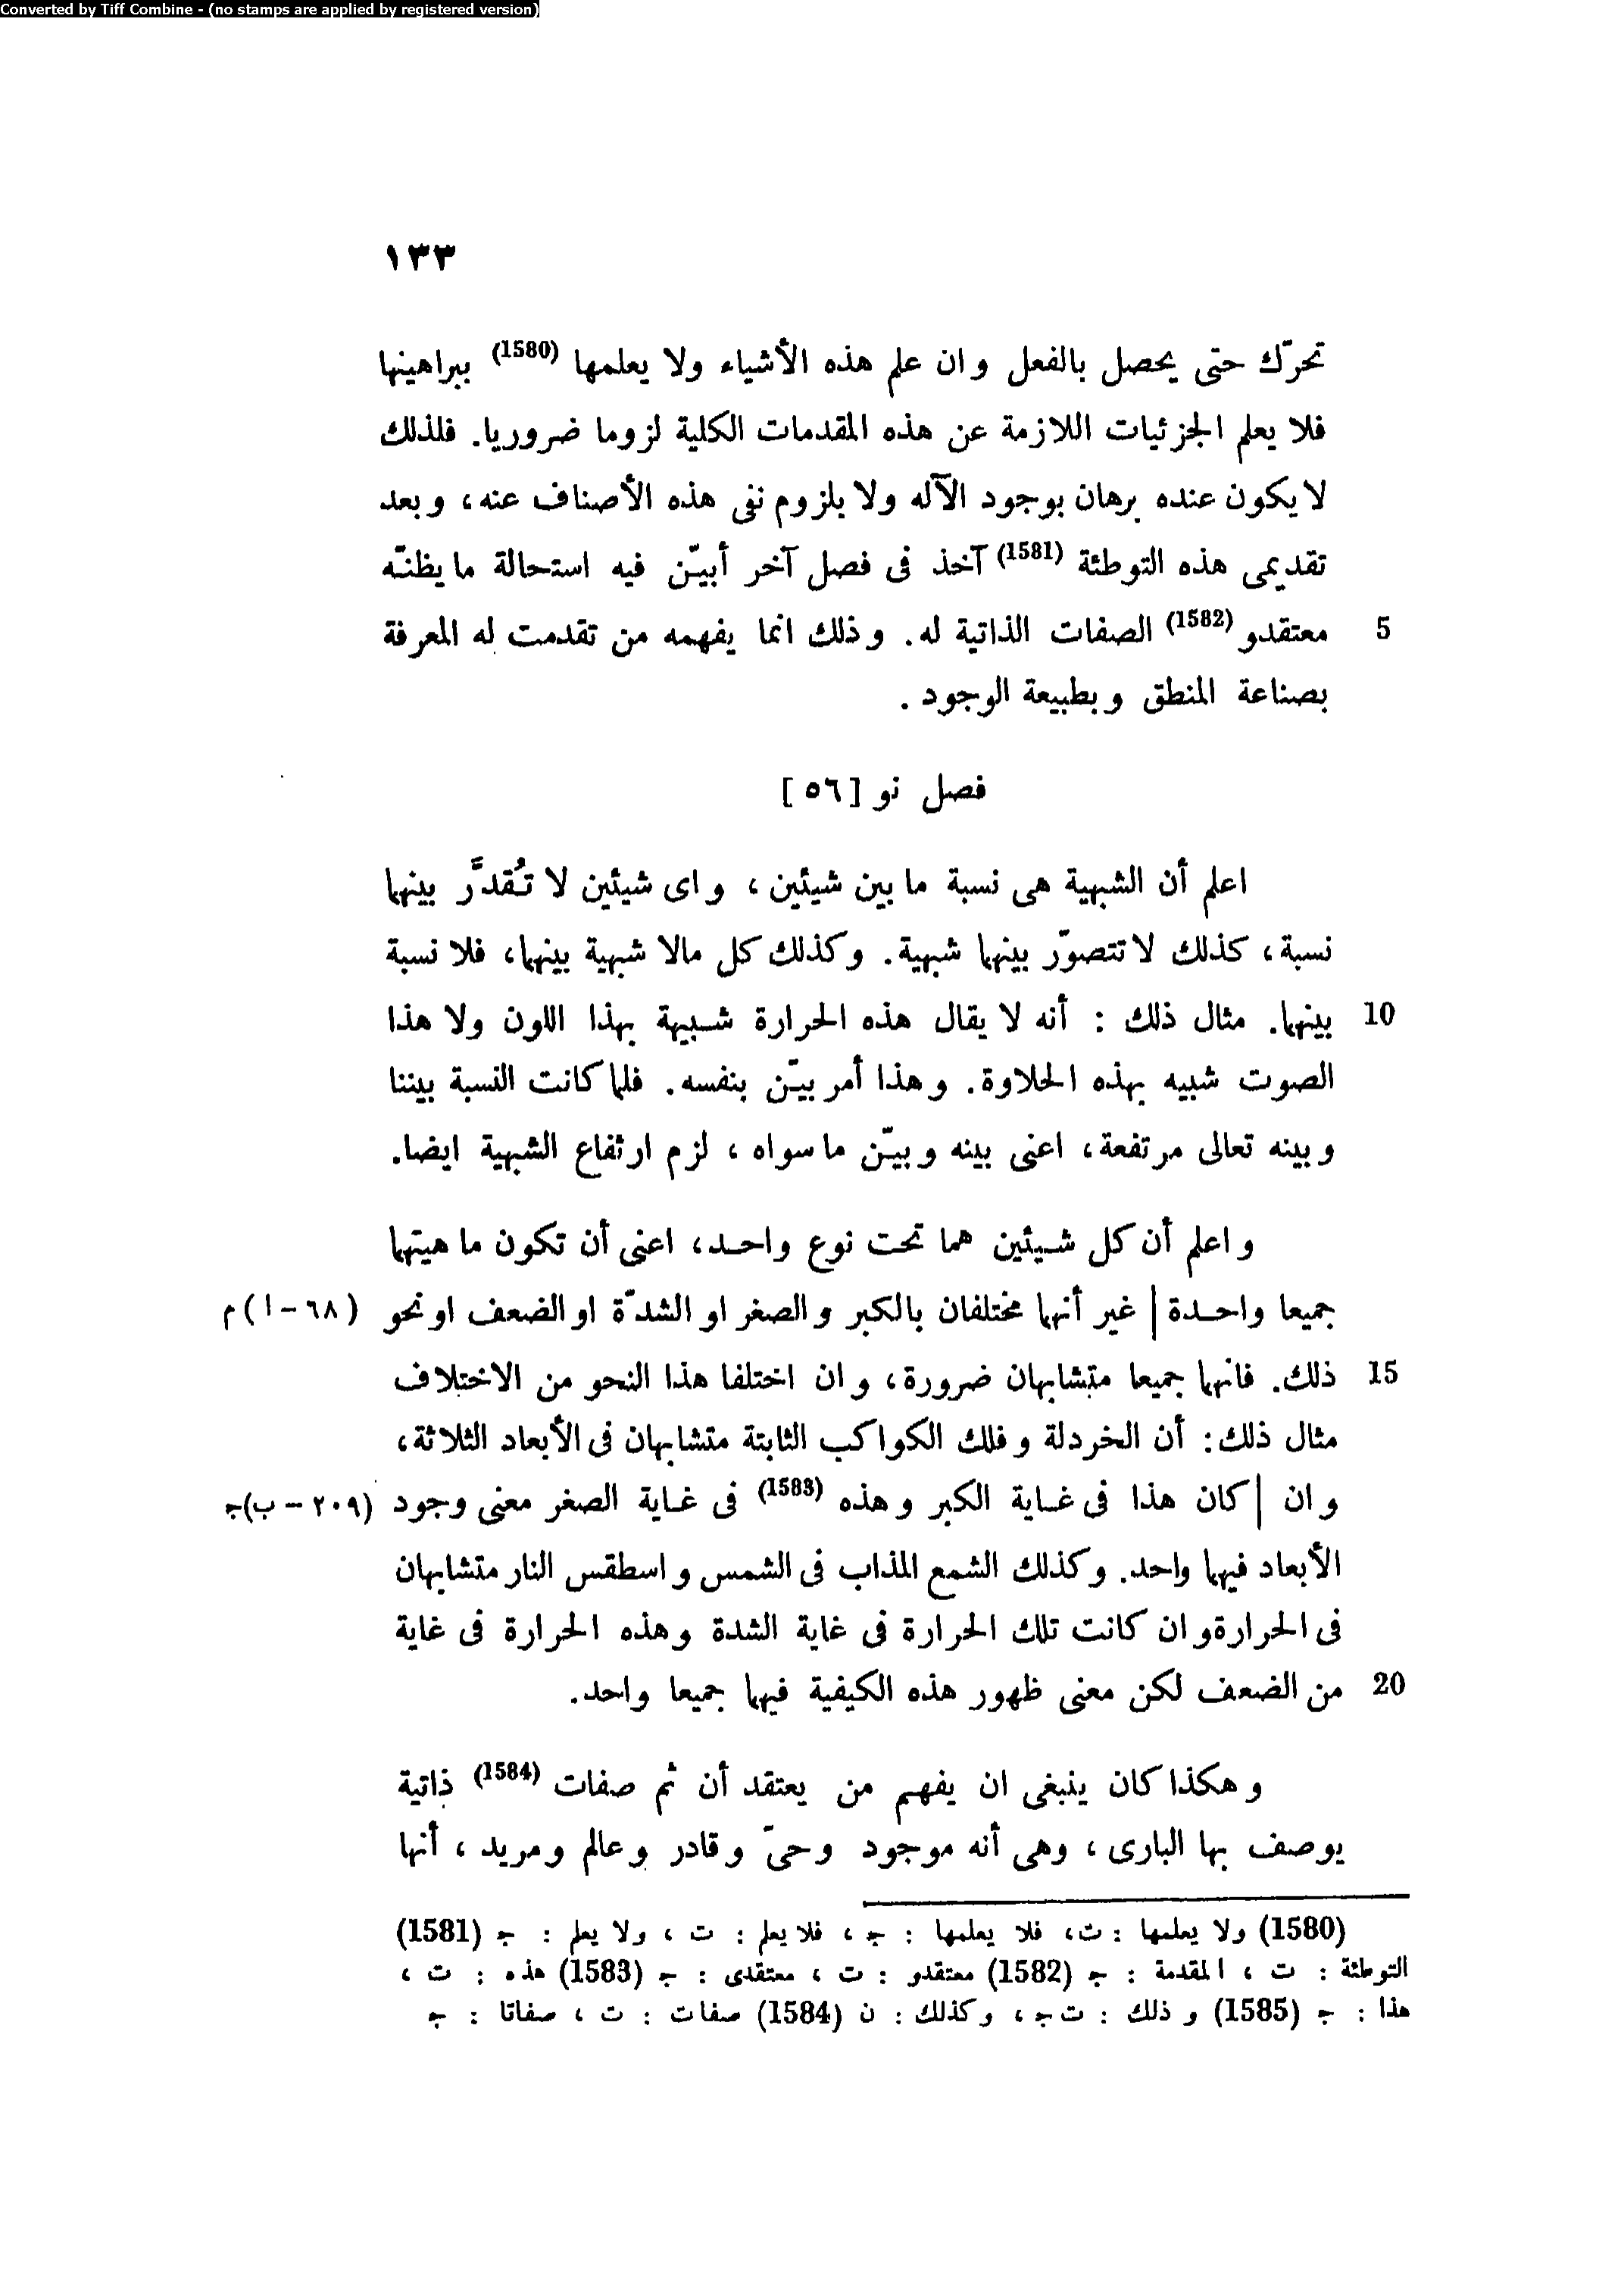 Converted by Tiff Combine - (no stamps are applied by registered version)
١٣٣
تحرّك حتى يحصل بالفعل وان علم هذه الأشياء ولا يعلمها (1580) ببراهينها
فلا يعلم الجزئيات اللازمة عن هذه المقدمات الكلية لزوما ضروريا. فلذلك
لا يكون عنده برهان بوجود الآله ولا بلزوم نفى هذه الأصناف عنه، وبعد
تقديمى هذه التوطئة (1581) آخذ فى فصل آخر أبيّن فيه استحالة ما يظنّه
5 معتقدو (1582) الصفات الذاتية له. وذلك انما يفهمه من تقدمت له المعرفة
بصناعة المنطق وبطبيعة الوجود .
فصل نو [٥٦]
اعلم أن الشبهية هى نسبة ما بين شيئين ، واى شيئين لا تُقدَّر بينهما
نسبة، كذلك لا تتصوّر بينهما شبهية. وكذلك كل مالا شبهية بينهما، فلا نسبة
10 بينهما. مثال ذلك : أنه لا يقال هذه الحرارة شبيهة بهذا اللون ولا هذا
الصوت شبيه بهذه الحلاوة. وهذا أمر بيّن بنفسه. فلما كانت النسبة بيننا
وبينه تعالى مرتفعة، اعنى بينه وبيّن ما سواه ، لزم ارتفاع الشبهية ايضا.
واعلم أن كل شيئين هما تحت نوع واحد، اعنى أن تكون ماهيتهما
جميعا واحدة | غير أنهما مختلفان بالكبر والصغر او الشدّة او الضعف او نحو (٦٨-ا) م
15 ذلك. فانهما جميعا متشابهان ضرورة، وان اختلفا هذا النحو من الاختلاف
مثال ذلك: أن الخردلة وفلك الكواكب الثابتة متشابهان فى الأبعاد الثلاثة،
وان | كان هذا فى غاية الكبر وهذه (1583) فى غاية الصغر معنى وجود (٢٠٩ - ب) ج
الأبعاد فيهما واحد. وكذلك الشمع المذاب فى الشمس واسطقس النار متشابهان
فى الحرارة وان كانت تلك الحرارة فى غاية الشدة وهذه الحرارة فى غاية
20 من الضعف لكن معنى ظهور هذه الكيفية فيهما جميعا واحد.
وهكذا كان ينبغى ان يفهم من يعتقد أن ثم صفات (1584) ذاتية
يوصف بها البارى ، وهى أنه موجود وحىّ وقادر وعالم ومريد ، أنها
(1580) ولا يعلمها : ت، فلا يعلمها : ج ، فلا يعلم : ت ، ولا يعلم : ج (1581)
التوطئة : ت ، المقدمة : ج (1582) معتقدو : ت ، معتقدى : ج (1583) هذه : ت ،
هذا : ج (1585) وذلك : ت ج ، وكذلك : ن (1584) صفات : ت ، صفاتا : ج